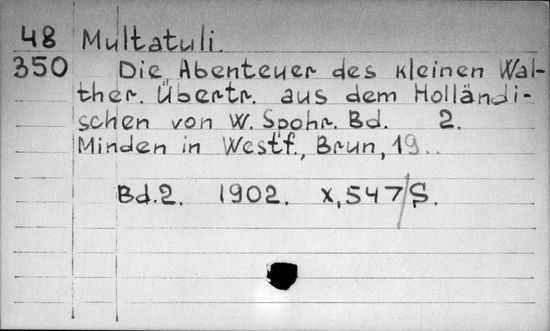 48 Multatuli.
350 Die Abenteuer des kleinen Wal-
ther. Übertr. aus dem Holländi-
schen von W. Spohr. Bd. 2.
Minden in Westf., Brun, 19..
Bd.2. 1902. X, 547 S.